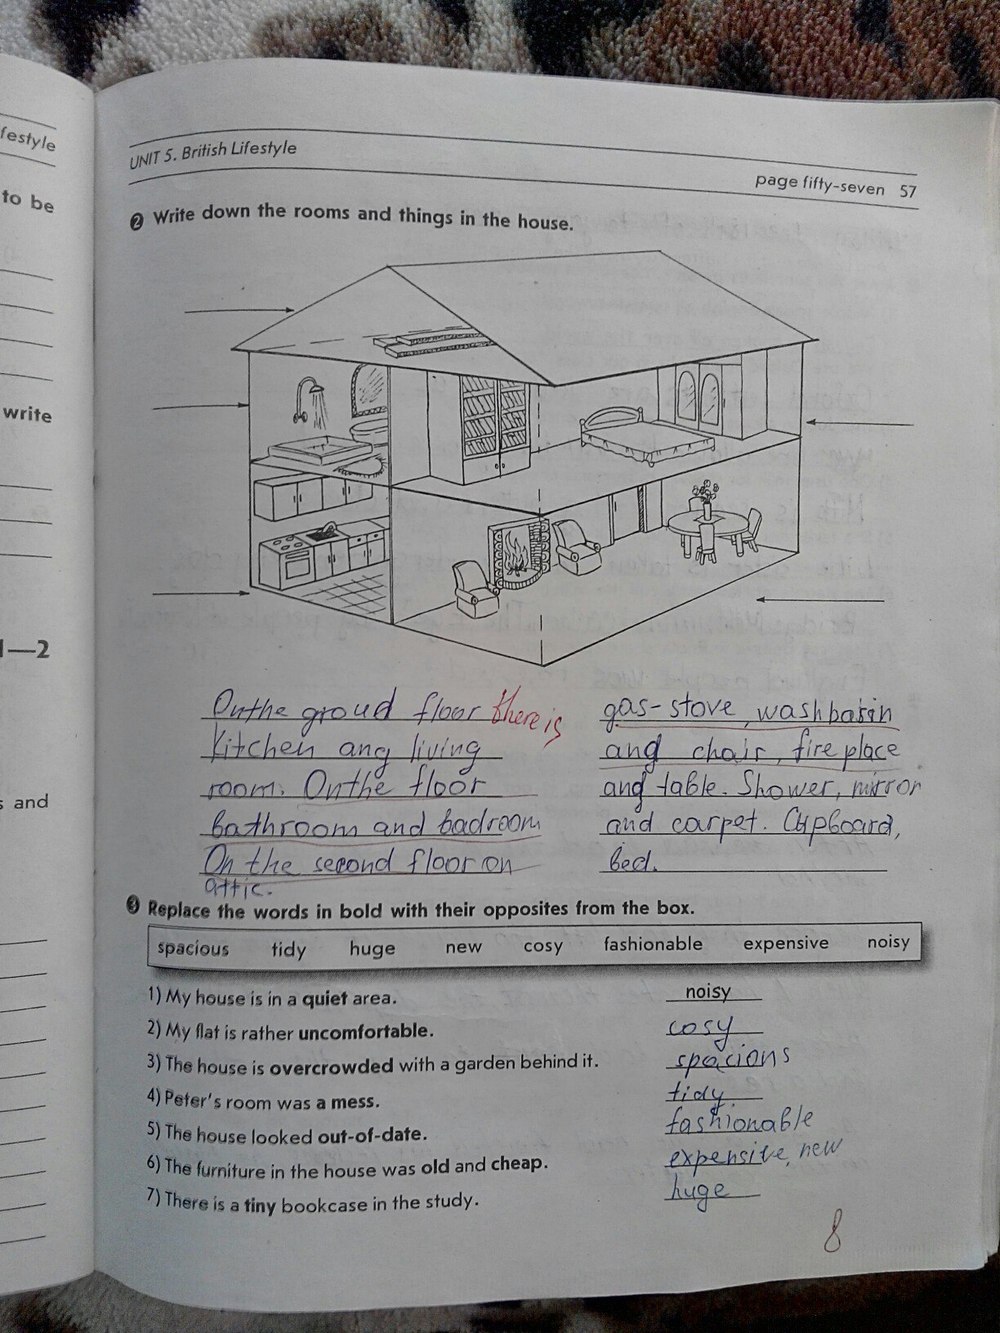 festyle
to be
write
1—2
s and
UNIT 5. British Lifestyle
page fifty-seven 57
2 Write down the rooms and things in the house.
Onthe groud floor there is
kitchen ang living
room. Onthe floor
bathroom and badroom
On the second floor on
attic.
gas-stove, washbasin
and chair, fireplace
and table. Shower, mirror
and carpet. Cupboard,
bed.
3 Replace the words in bold with their opposites from the box.
spacious tidy huge new cosy fashionable expensive noisy
1) My house is in a quiet area. noisy
2) My flat is rather uncomfortable. cosy
3) The house is overcrowded with a garden behind it. spacions
4) Peter's room was a mess. tidy
5) The house looked out-of-date. fashionable
6) The furniture in the house was old and cheap. expensive, new
7) There is a tiny bookcase in the study. huge
8